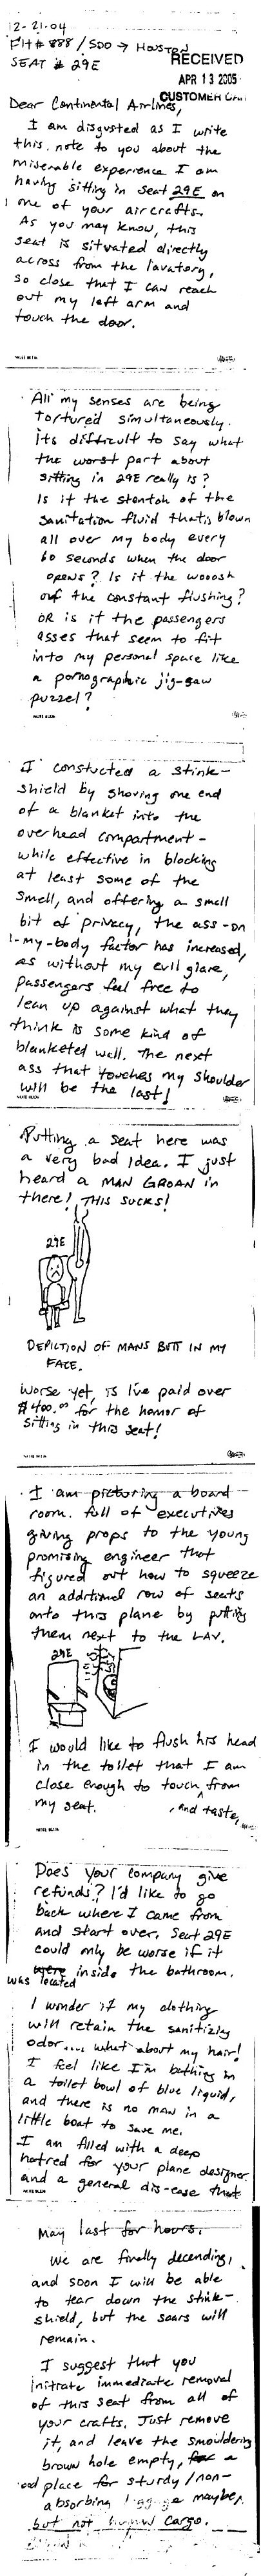 12-21-04
Flt # 888 / SDO → HOUSTON
SEAT # 29E
RECEIVED
APR 13 2005
CUSTOMER CARE
Dear Continental Airlines,
I am disgusted as I write
this note to you about the
miserable experience I am
having sitting in seat 29E on
one of your aircrafts.
As you may know, this
seat is situated directly
across from the lavatory,
so close that I can reach
out my left arm and
touch the door.
All my senses are being
tortured simultaneously.
Its difficult to say what
the worst part about
sitting in 29E really is?
Is it the stentch of the
sanitation fluid that is blown
all over my body every
60 seconds when the door
opens? Is it the wooosh
of the constant flushing?
OR is it the passengers
asses that seem to fit
into my personal space like
a pornographic jig-saw
puzzel?
I constucted a stink-
shield by shoving one end
of a blanket into the
overhead compartment -
while effective in blocking
at least some of the
smell, and offering a small
bit of privacy, the ass-on
-my-body factor has increased,
as without my evil glare,
passengers feel free to
lean up against what they
think is some kind of
blanketed wall. The next
ass that touches my shoulder
will be the last!
Putting a seat here was
a very bad idea. I just
heard a MAN GROAN in
there! THIS SUCKS!
29E
DEPICTION OF MANS BUTT IN MY
FACE.
Worse yet, is I've paid over
$400.00 for the honor of
sitting in this seat!
I am picturing a board
room, full of executives
giving props to the young
promising engineer that
figured out how to squeeze
an additional row of seats
onto this plane by putting
them next to the LAV.
29E
I would like to flush his head
in the toilet that I am
close enough to touch, from
my seat.
, and taste,
Does your company give
refunds? I'd like to go
back where I came from
and start over. Seat 29E
could only be worse if it
was located inside the bathroom.
I wonder if my clothing
will retain the sanitizing
odor.... what about my hair!
I feel like I'm bathing in
a toilet bowl of blue liquid,
and there is no man in a
little boat to save me.
I am filled with a deep
hatred for your plane designer
and a general dis-ease that
may last for hours.
We are finally decending,
and soon I will be able
to tear down the stink-
shield, but the scars will
remain.
I suggest that you
initiate immediate removal
of this seat from all of
your crafts. Just remove
it, and leave the smouldering
brown hole empty, a
place for sturdy/non-
absorbing luggage maybe,
but not human cargo.